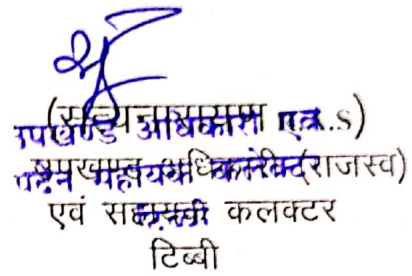 (सत्यनारायण R.A.S)
उपखण्ड अधिकारी
उपखण्ड अधिकारी (राजस्व)
पदेन सहायक कलेक्टर
एवं सहायक कलक्टर
टिब्बी
टिब्बी